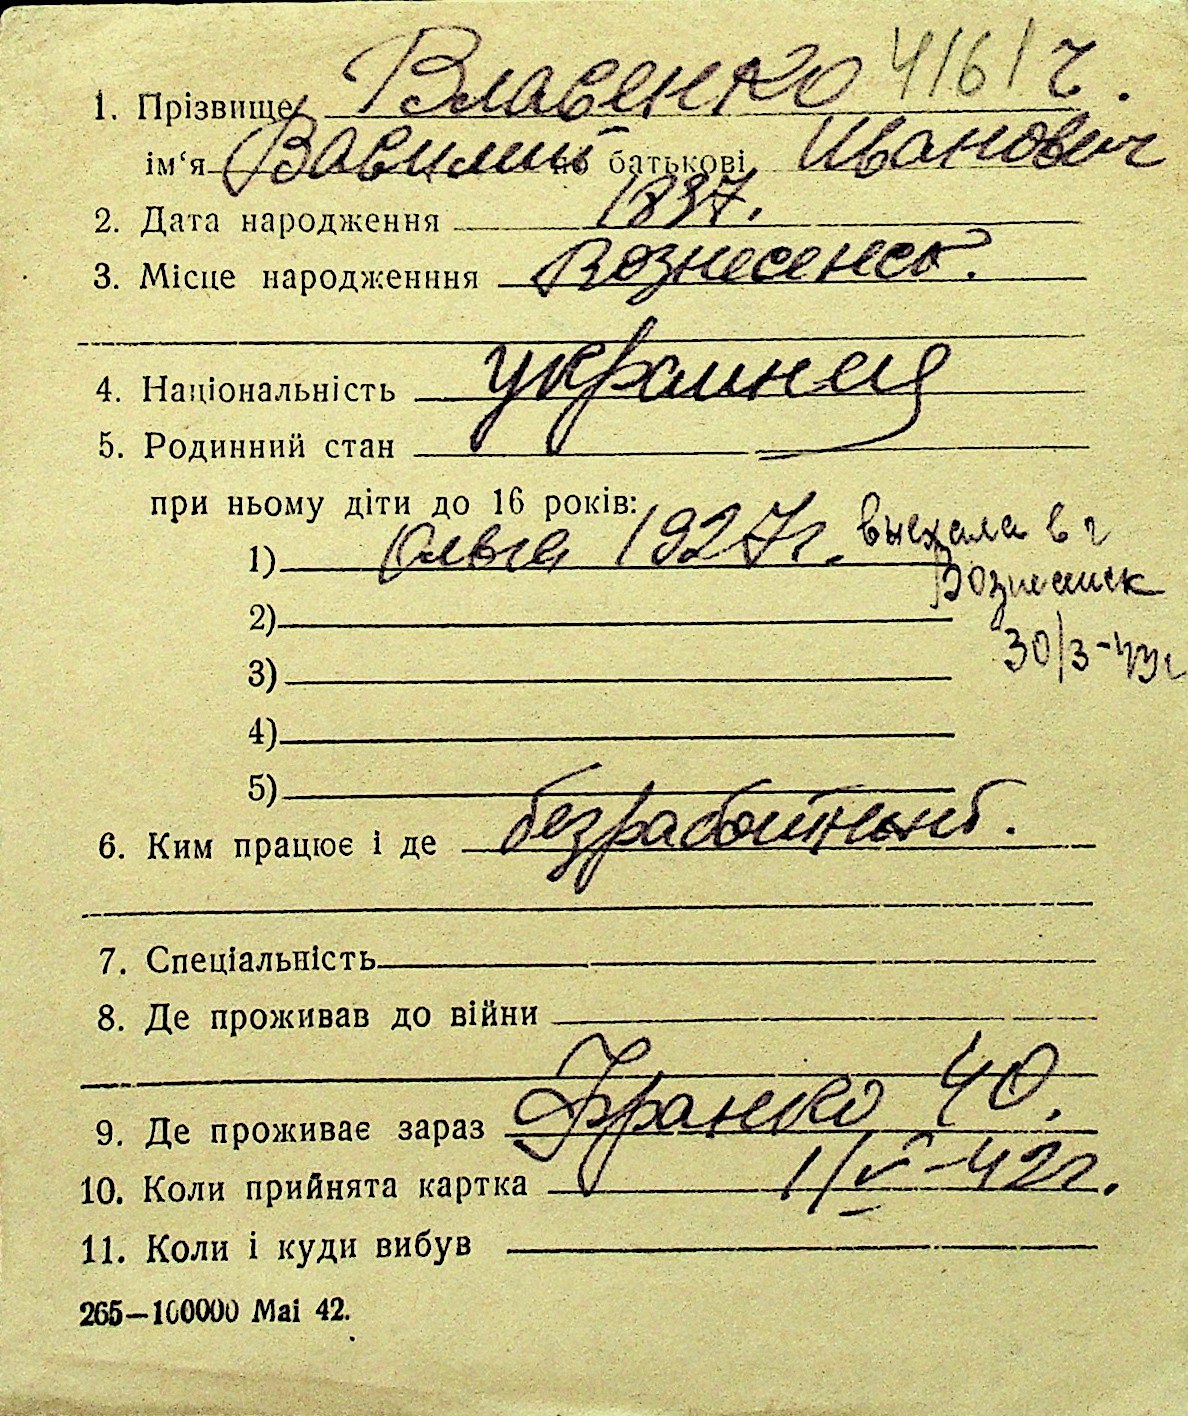 1. Прізвище Власенко 4161 ч.
ім‘я Василий по батькові Иванович
2. Дата народження 1897.
3. Місце народженння Вознесенск.
4. Національність украинец
5. Родинний стан —
при ньому діти до 16 років:
1) Ольга 1927г. выехала в г
Вознесенск
30/3-43г
2)
3)
4)
5)
6. Ким працює і де безработный.
7. Спеціальність
8. Де проживав до війни
9. Де проживає зараз Франко 40.
10. Коли прийнята картка 1/V-42г.
11. Коли і куди вибув
265—100000 Mai 42.